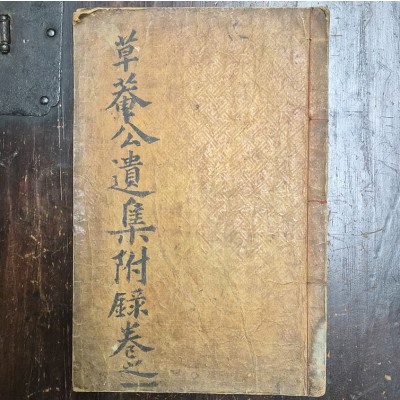 草菴公遺集附錄卷之二